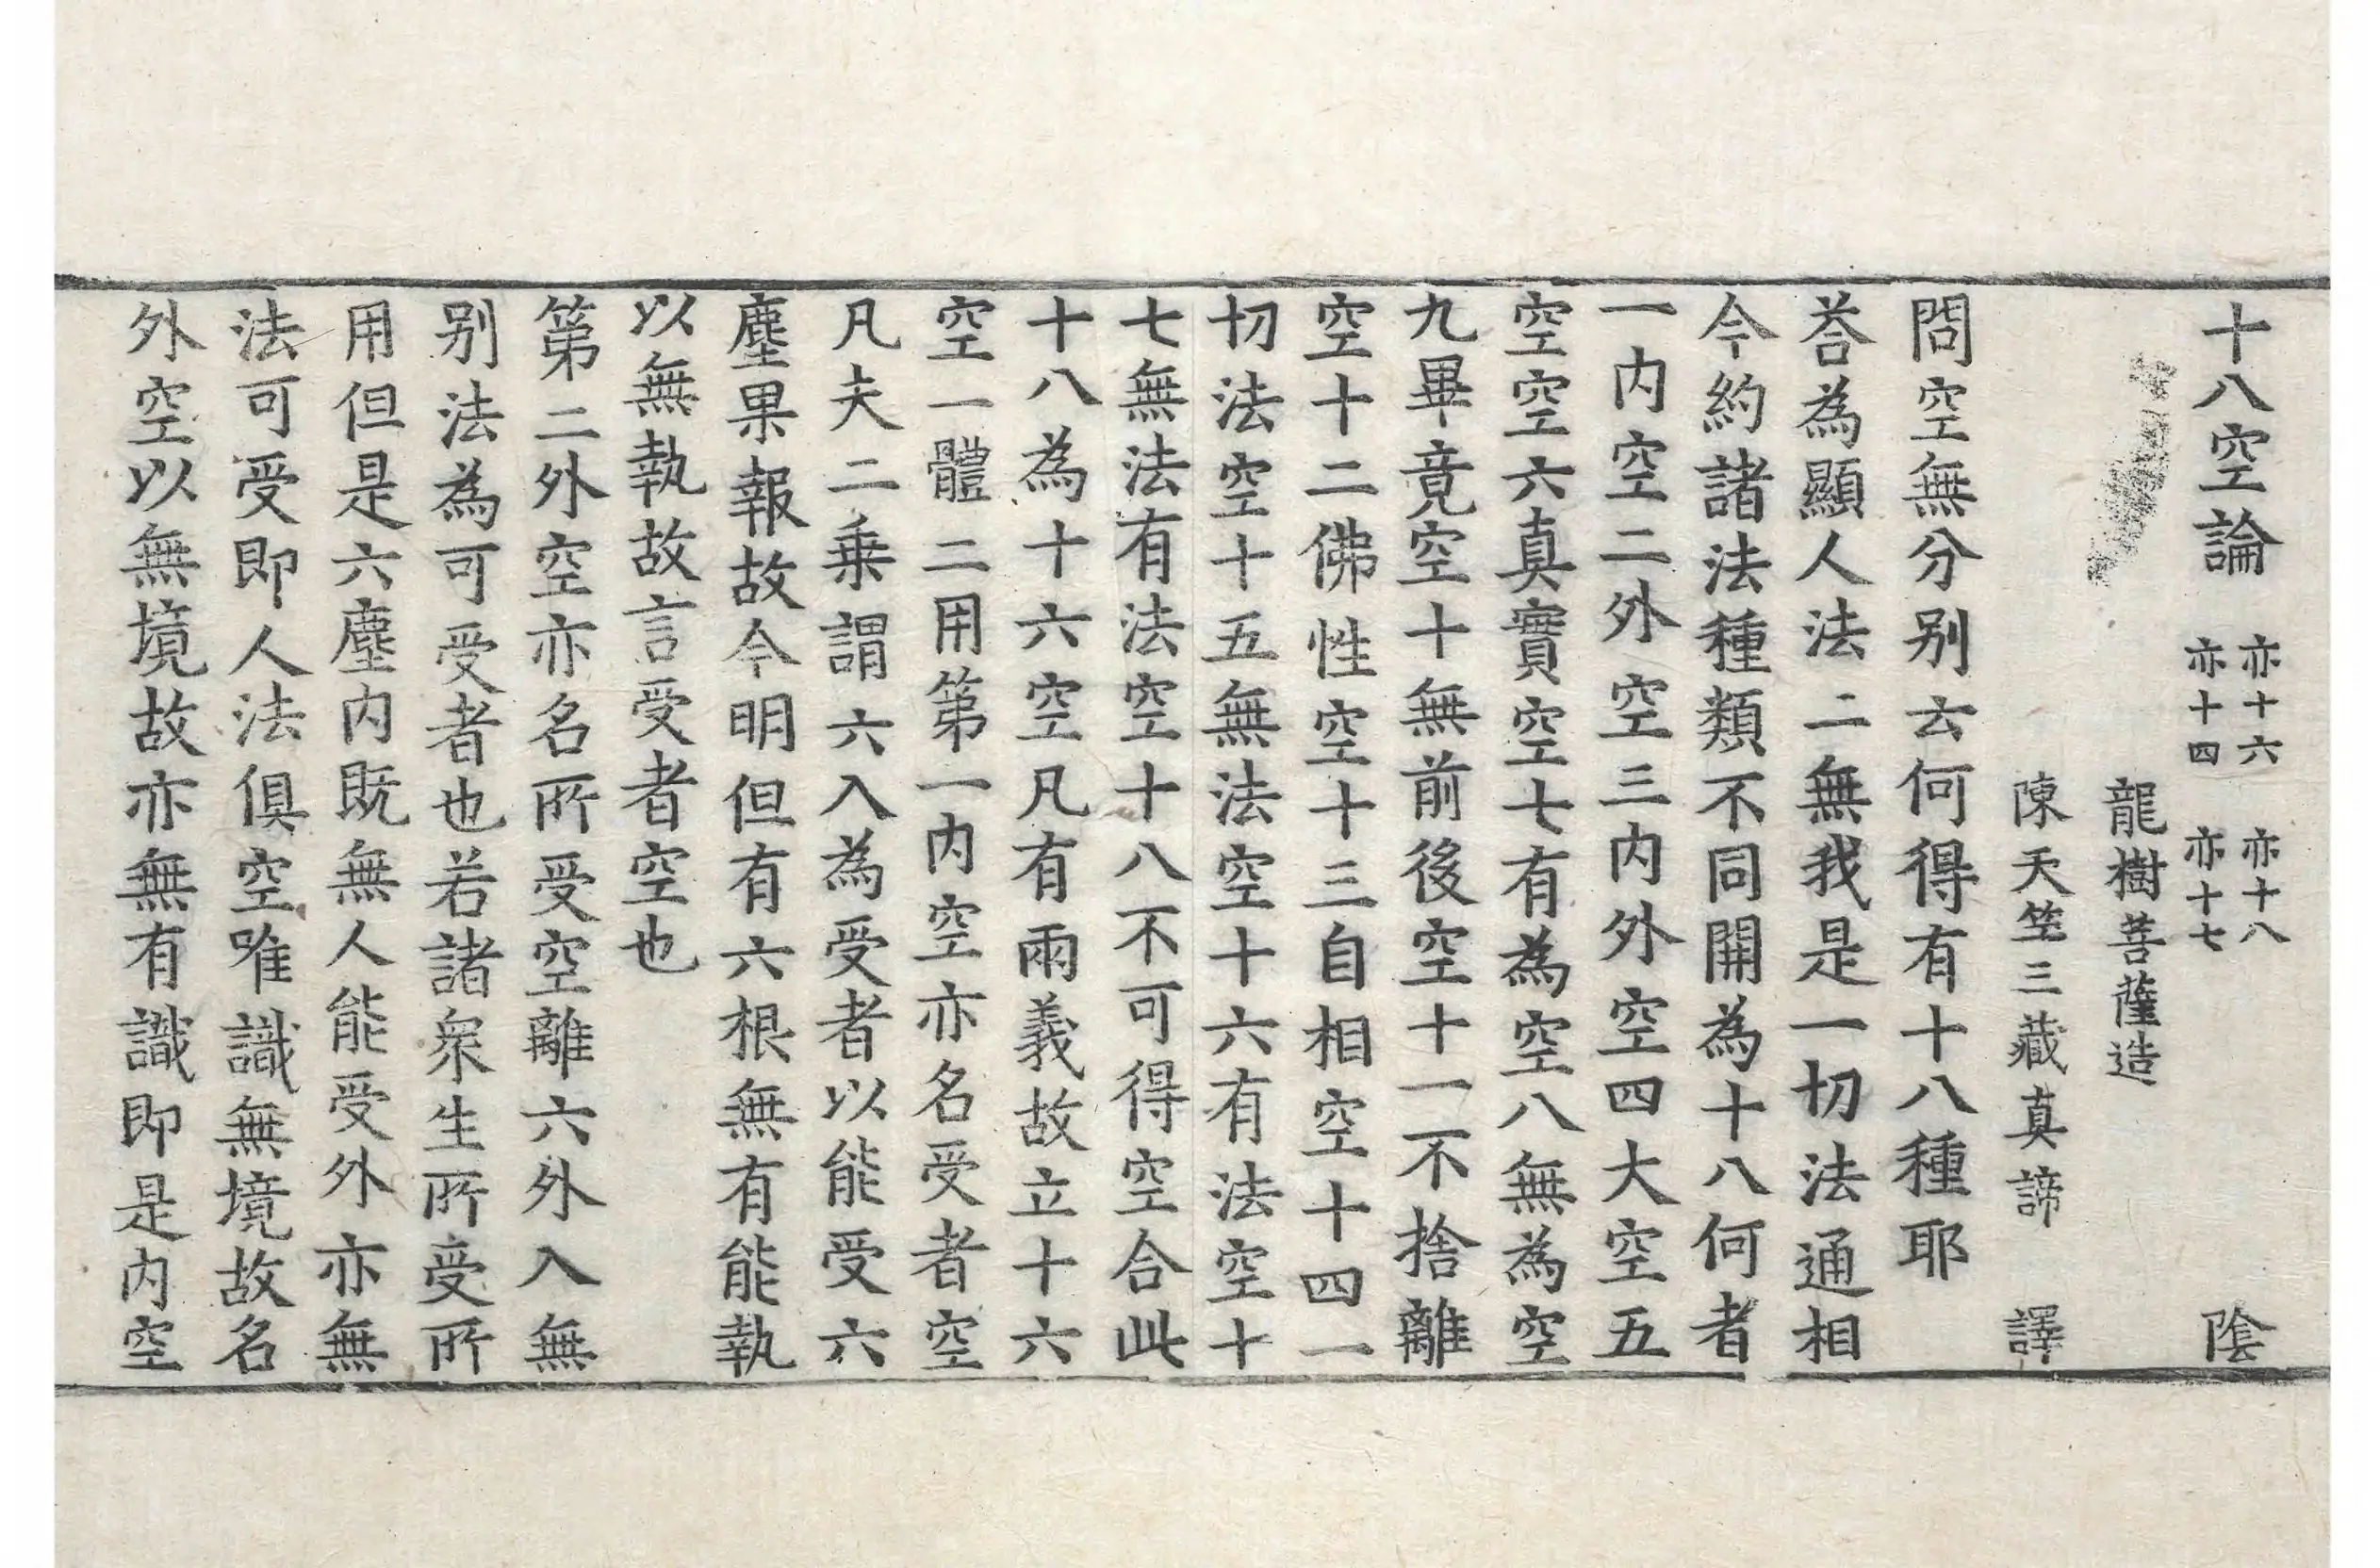 十八空論 亦十六 亦十八 亦十四 亦十七 陰
龍樹菩薩造
陳天竺三藏真諦 譯
問空無分别云何得有十八種耶
荅為顯人法二無我是一切法通相
今約諸法種類不同開為十八何者
一内空二外空三内外空四大空五
空空六真實空七有為空八無為空
九畢竟空十無前後空十一不捨離
空十二佛性空十三自相空十四一
切法空十五無法空十六有法空十
七無法有法空十八不可得空合此
十八為十六空凡有兩義故立十六
空一體二用第一内空亦名受者空
凡夫二乗謂六入為受者以能受六
塵果報故今明但有六根無有能執
以無執故言受者空也
第二外空亦名所受空離六外入無
别法為可受者也若諸衆生所受所
用但是六塵内既無人能受外亦無
法可受即人法俱空唯識無境故名
外空以無境故亦無有識即是内空